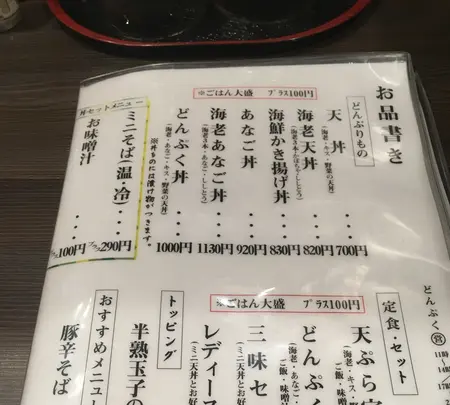 お品書き
どんぶりもの
※ごはん大盛 プラス100円
天丼・・・700円
(海老・キス・野菜の天丼)
海老天丼・・・820円
海鮮かき揚げ丼・・・830円
あなご丼・・・920円
(あなご・ししとう)
海老あなご丼・・・1130円
(海老・あなご・ししとう)
どんぷく丼・・・1000円
(海老・あなご・キス・野菜の天丼)
※丼ものには漬け物がつきます。
丼セットメニュー
ミニそば(温・冷)・・・プラス290円
お味噌汁・・・プラス100円
どんぷく
定食・セット
※ごはん大盛 プラス100円
天ぷら定
(海老・キス・
ご飯・味噌
どんぷく
(海老・あなご・
ご飯・味噌
三味セ
(ミニ天丼とお好
レディース
(ミニ天丼とお好
トッピング
半熟玉子の
おすすめメニュー
豚辛そば